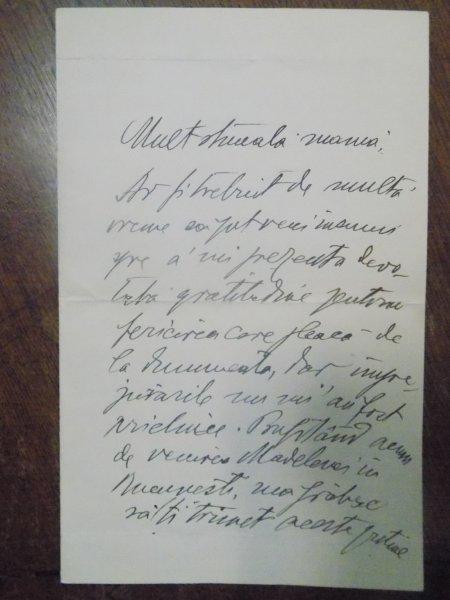 Mult stimată mamă,
Ar fi trebuit de multă
vreme să pot veni
spre a'mi prezenta devo-
gratitudine pentru
fericirea care pleacă de
la dumneata, dar impre-
jurările nu mi'au fost
prielnice. Profitând acum
de venirea Madelenei în
București, mă grăbesc
să'ți trimet aceste puține